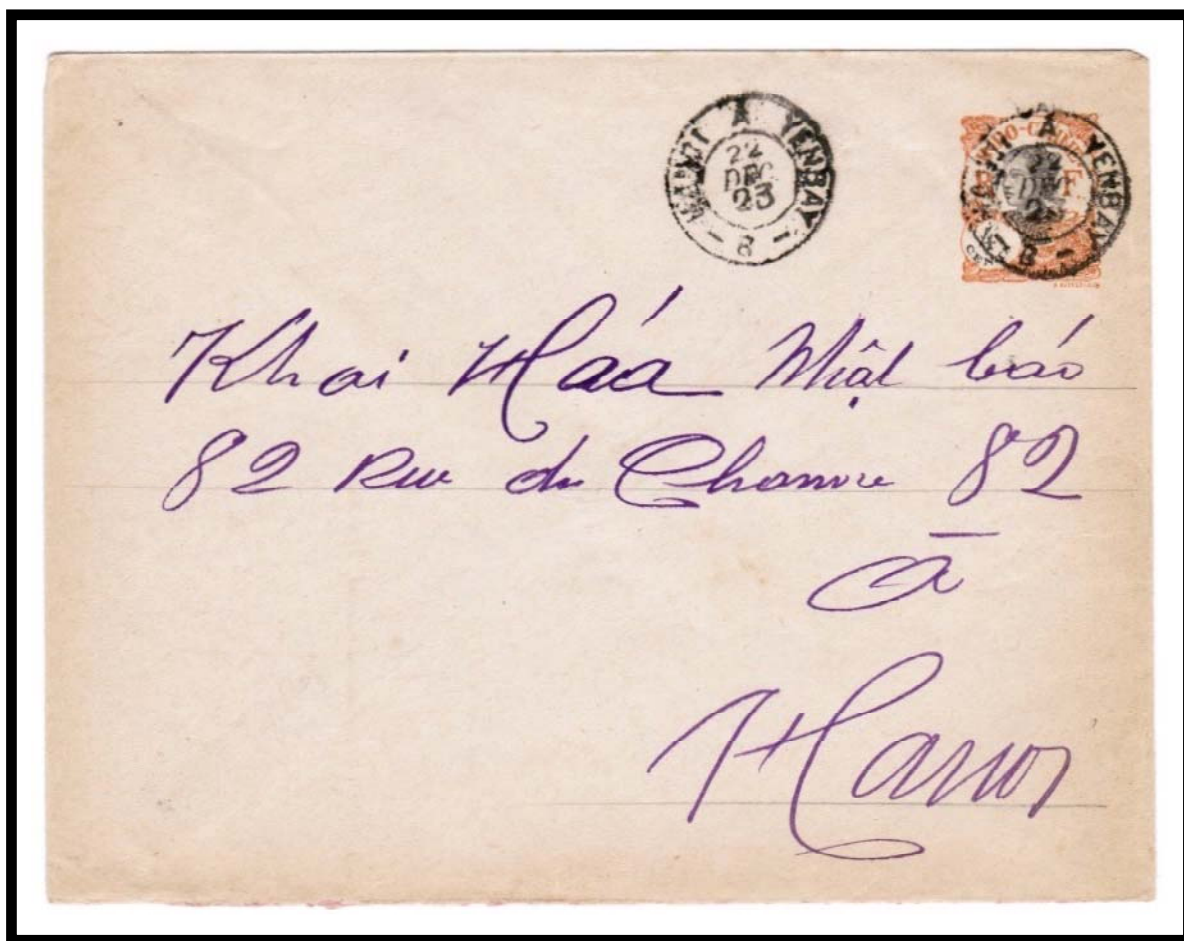 HANOI A YENBAY
22
DEC
23
- 8 -
INDO-CHINE
R F
HANOI A YENBAY
22
DEC
23
- 8 -
Khai Hóa Nhật báo
82 Rue du Chanvre 82
à
Hanoi